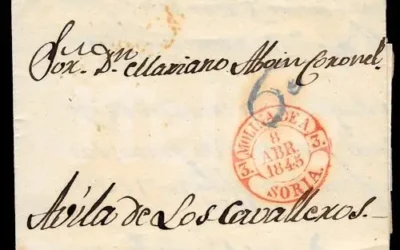 Sor. Dn. Mariano Moin Coronel.
6
MOLINA DE A
3. 3.
8
ABR.
1845
SORIA.
Avila de Los Cavalleros.